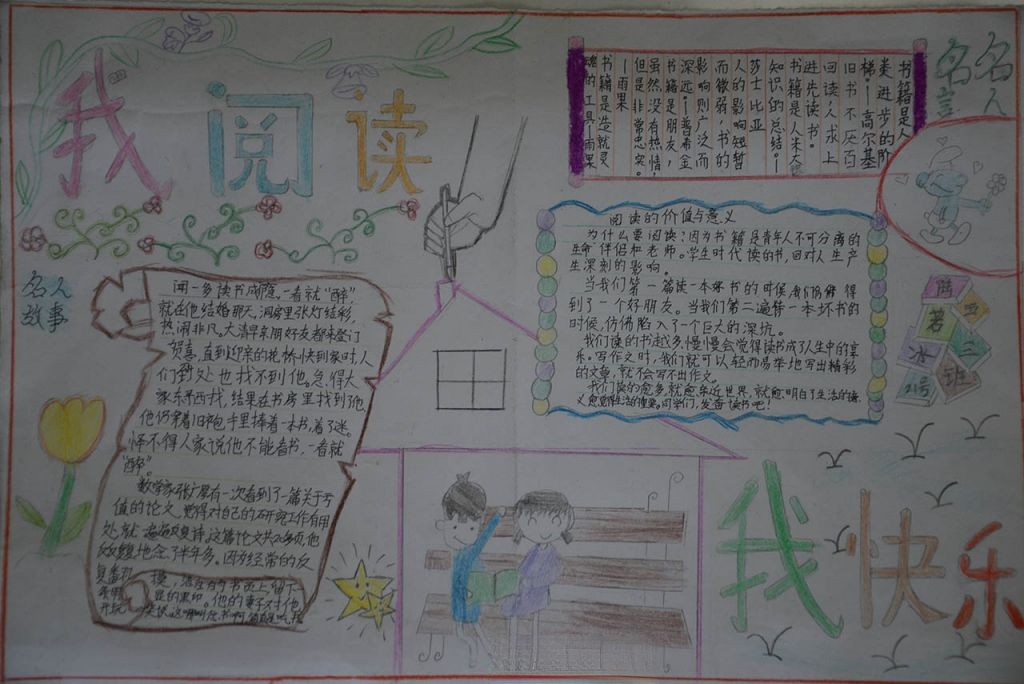 我阅读
名人
故事
闻一多读书成瘾,一看就“醉”
就在他结婚那天,洞房里张灯结彩,
热闹非凡。大清早亲朋好友都来登门
贺喜,直到迎亲的花轿快到家时,人
们到处也找不到他。急得大
家东寻西找,结果在书房里找到了他
他仍穿着旧袍,手里捧着一本书,着了迷。
怪不得人家说他不能看书,一看就
“醉”。
数学家张广厚有一次看到了一篇关于亏
值的论文,觉得对自己的研究工作有用
处,就一遍遍反复读。这篇论文共20多页,他
反反复复地念了半年多。因为经常的反
复翻
摸,洁白的书页上,留下一
的黑印。他的妻子对他
名人
名言
书籍是人
类进步的阶
梯—高尔基
旧书不厌百
回读,人求上
进先读书。
书籍是人类
知识的总结。—
莎士比亚
人的影响短暂
而微弱,书的
影响则广泛而
深远—普希金
书籍是朋友,
虽然没有热情,
但是非常忠实。
—雨果
书籍是造就灵
魂的工具—雨果
阅读的价值与意义
为什么要阅读?因为书籍是青年人不可分离的
生命伴侣和老师。学生时代读的书,会对人生产
生深刻的影响。
当我们第一篇读一本好书的时候,我们仿佛得
到了一个好朋友。当我们第二遍读一本坏书的
时候,仿佛陷入了一个巨大的深坑。
我们读的书越多,慢慢会觉得读书成了人生中的喜
乐。写作文时,我们就可以轻而易举地写出精彩
的文章,就不会写不出作文。
我们读的愈多,就愈亲近世界,就愈明白了生活的意
义,愈觉得生活的重要。同学们,发奋读书吧!
腾
四
著
三
冰
班
21号
我快乐